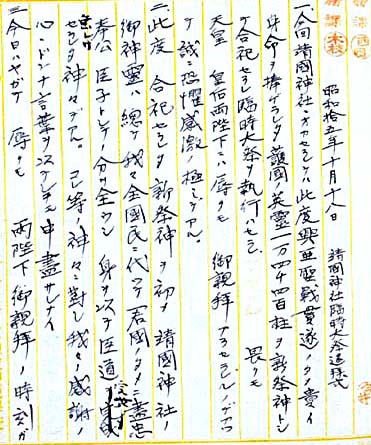 昭和拾五年十月十八日　靖國神社臨時大祭遥拝式
一、今回靖國神社ニオカセラレテハ此度興亜聖戦貫遂ノタメ貴イ
身命ヲ捧ゲラレタ護國ノ英霊一万四千四百柱ヲ新祭神トシ
テ合祀セラレ臨時大祭ヲ執行ハセラレ　畏クモ
天皇　皇后両陛下ニハ辱クモ　御親拝アラセラルヽノデアツ
テ誠ニ恐懼感激ノ極ミデアル。
二、此度合祀セラレタ新祭神ヲ初メ靖國神社ノ
御神霊ハ総ゲ我々全國民ニ代ツテ君國ノタメニ盡忠
奉公臣子トシテノ分ヲ全ウシ身ヲ以ヲテ臣道ヲ実践
セラレタ神々デアル。コレ等ノ神々ニ対シ我々ノ感謝ノ
心ハドンナ言葉ヲ以ヲテシテモ申盡サレナイ
三、今日ハヤガテ辱クモ　両陛下御親拝ノ時刻ガ